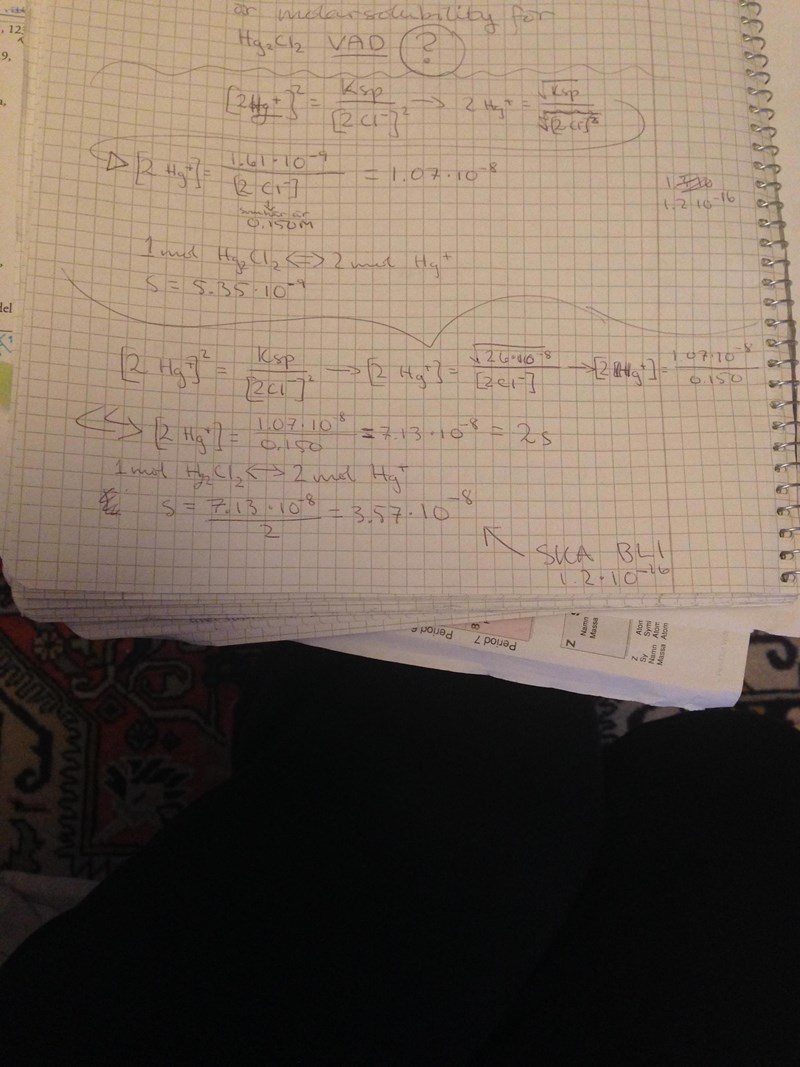 är molarsolubility for
Hg₂Cl₂ VAD ?
[2Hg⁺]² = Ksp / [2Cl⁻]² → 2Hg⁺ = √Ksp / √[2Cl⁻]²
▷ [2 Hg⁺] = 1.61·10⁻⁹ / [2 Cl⁻] = 1.07·10⁻⁸
0.150M
1.2·10⁻¹⁶
1 mol Hg₂Cl₂ ⇔ 2 mol Hg⁺
S = 5.35·10⁻⁹
[2 Hg⁺]² = Ksp / [2Cl⁻]² → [2 Hg⁺] = √26·10⁻⁸ / [2Cl⁻] → [2Hg⁺] = 1.07·10⁻⁸ / 0.150
[2 Hg⁺] = 1.07·10⁻⁸ / 0.150 = 7.13·10⁻⁸ = 2s
1 mol Hg₂Cl₂ ↔ 2 mol Hg⁺
S = 7.13·10⁻⁸ / 2 = 3.57·10⁻⁸
SKA BLI
1.2·10⁻¹⁶
Period 6
Period 7
Z
Namn
Massa
Z
Sy
Namn
Massa
Aton
Symb
Atom
Atom